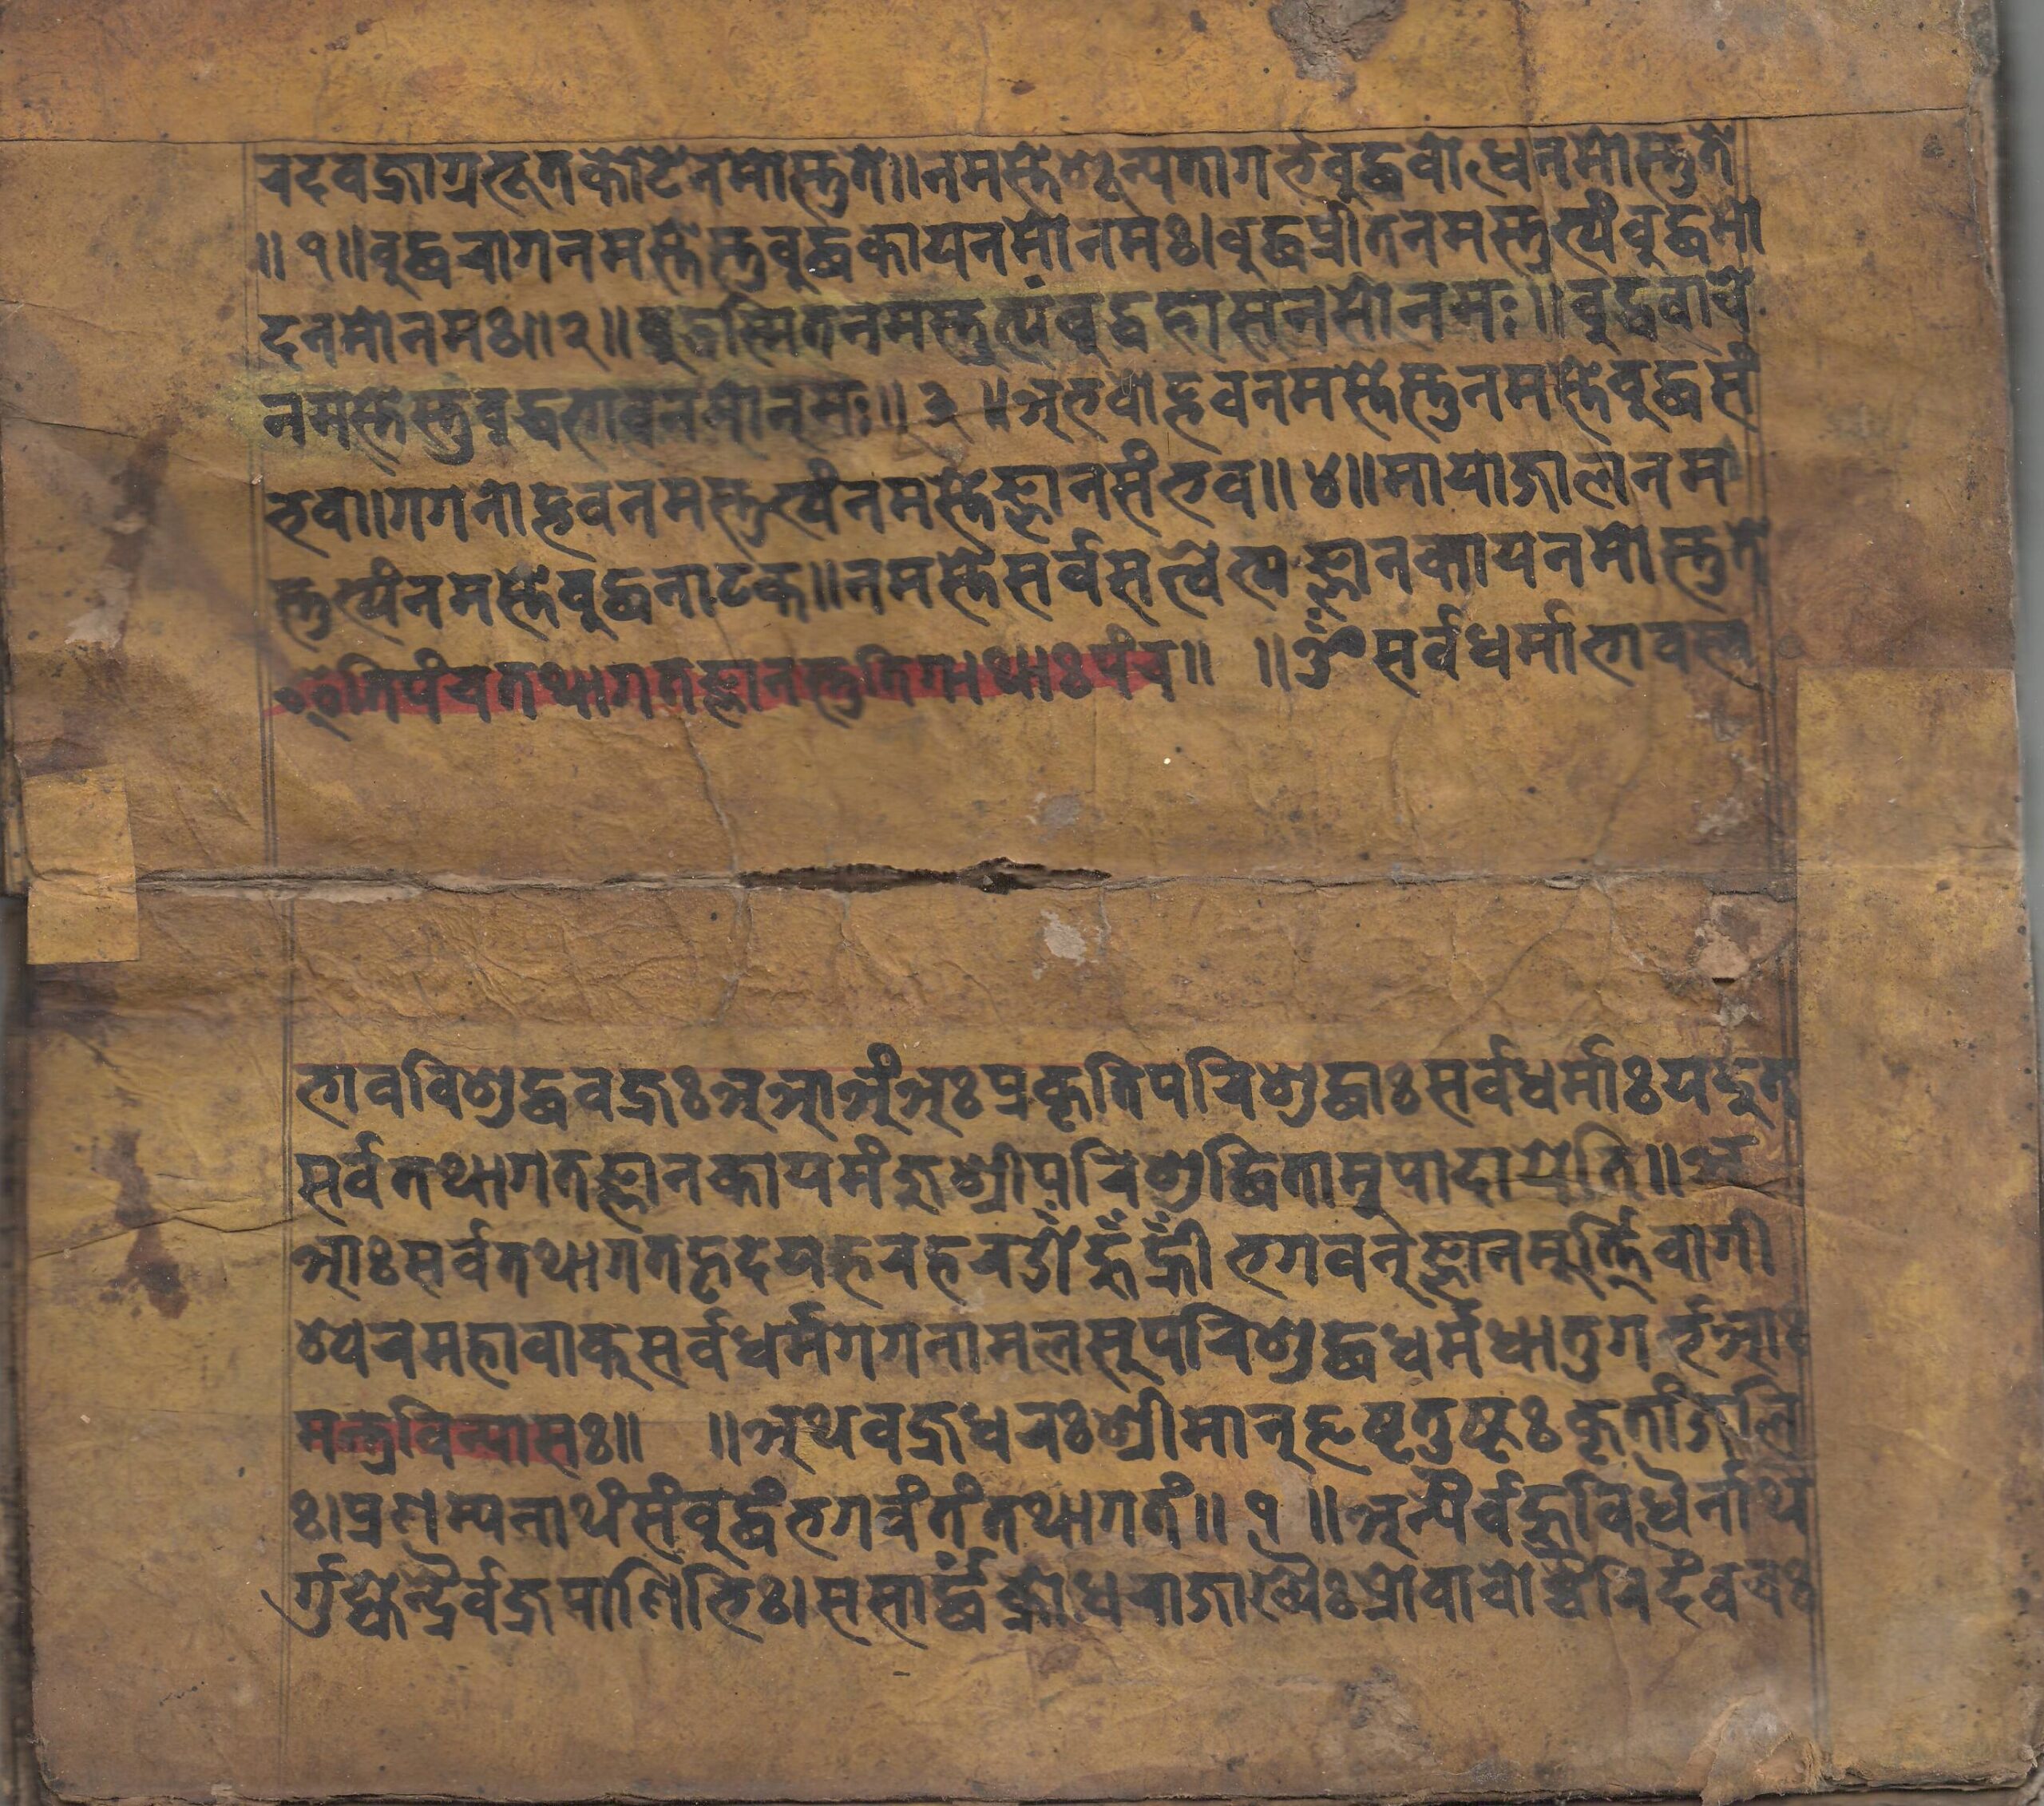 रदवज्राग्रभूतकोटेनमोस्तुते॥नमस्तेशून्यतागर्भबुद्धबोधनमोस्तुते
॥१॥बुद्धरागनमस्तेस्तुबुद्धकायनमोनमः।बुद्धप्रीतनमस्तुभ्यंबुद्धमो
दनमोनमः॥२॥बुद्धस्मितनमस्तुभ्यंबुद्धहासनमोनमः॥बुद्धवाचे
नमस्तेस्तुबुद्धभावनमोनमः॥३॥अभवोद्भवनमस्तेस्तुनमस्तेबुद्धसं
भवा॥गगनोद्भवनमस्तुभ्यंनमस्तेज्ञानसंभव॥४॥मायाजालनम
स्तुभ्यंनमस्तेबुद्धनाटक॥नमस्तेसर्वसर्वेभ्यज्ञानकायनमोस्तुते
इतिपंचतथागतज्ञानस्तुतिगाथाःपंच॥ ॥ॐसर्वधर्माभावस्व
भावविशुद्धवज्रःअआअंअःप्रकृतिपरिशुद्धाःसर्वधर्माःयदुत
सर्वतथागतज्ञानकायमंजुश्रीपरिशुद्धितामुपादाय्रेति॥अ
आःसर्वतथागतहृदयहरहरओँहूँह्रीँभगवन्ज्ञानमूर्त्तिवागी
श्वरमहावाक्सर्वधर्मगगनामलसुपरिशुद्धधर्मधातुगर्भआः
मन्त्रविन्यासः॥ ॥अथवज्रधरःश्रीमान्हृष्टतुष्टःकृतांजलि
ः।प्रणम्यनाथंसंबुद्धंभगवंतंतथागतं॥१॥अन्यैर्वहुविधैर्नाथ
र्गुह्येन्द्रैर्वज्रपाणिभिः।ससार्द्धंक्रोधराजाख्यैःप्रोवाचोच्चैरिदंवचः